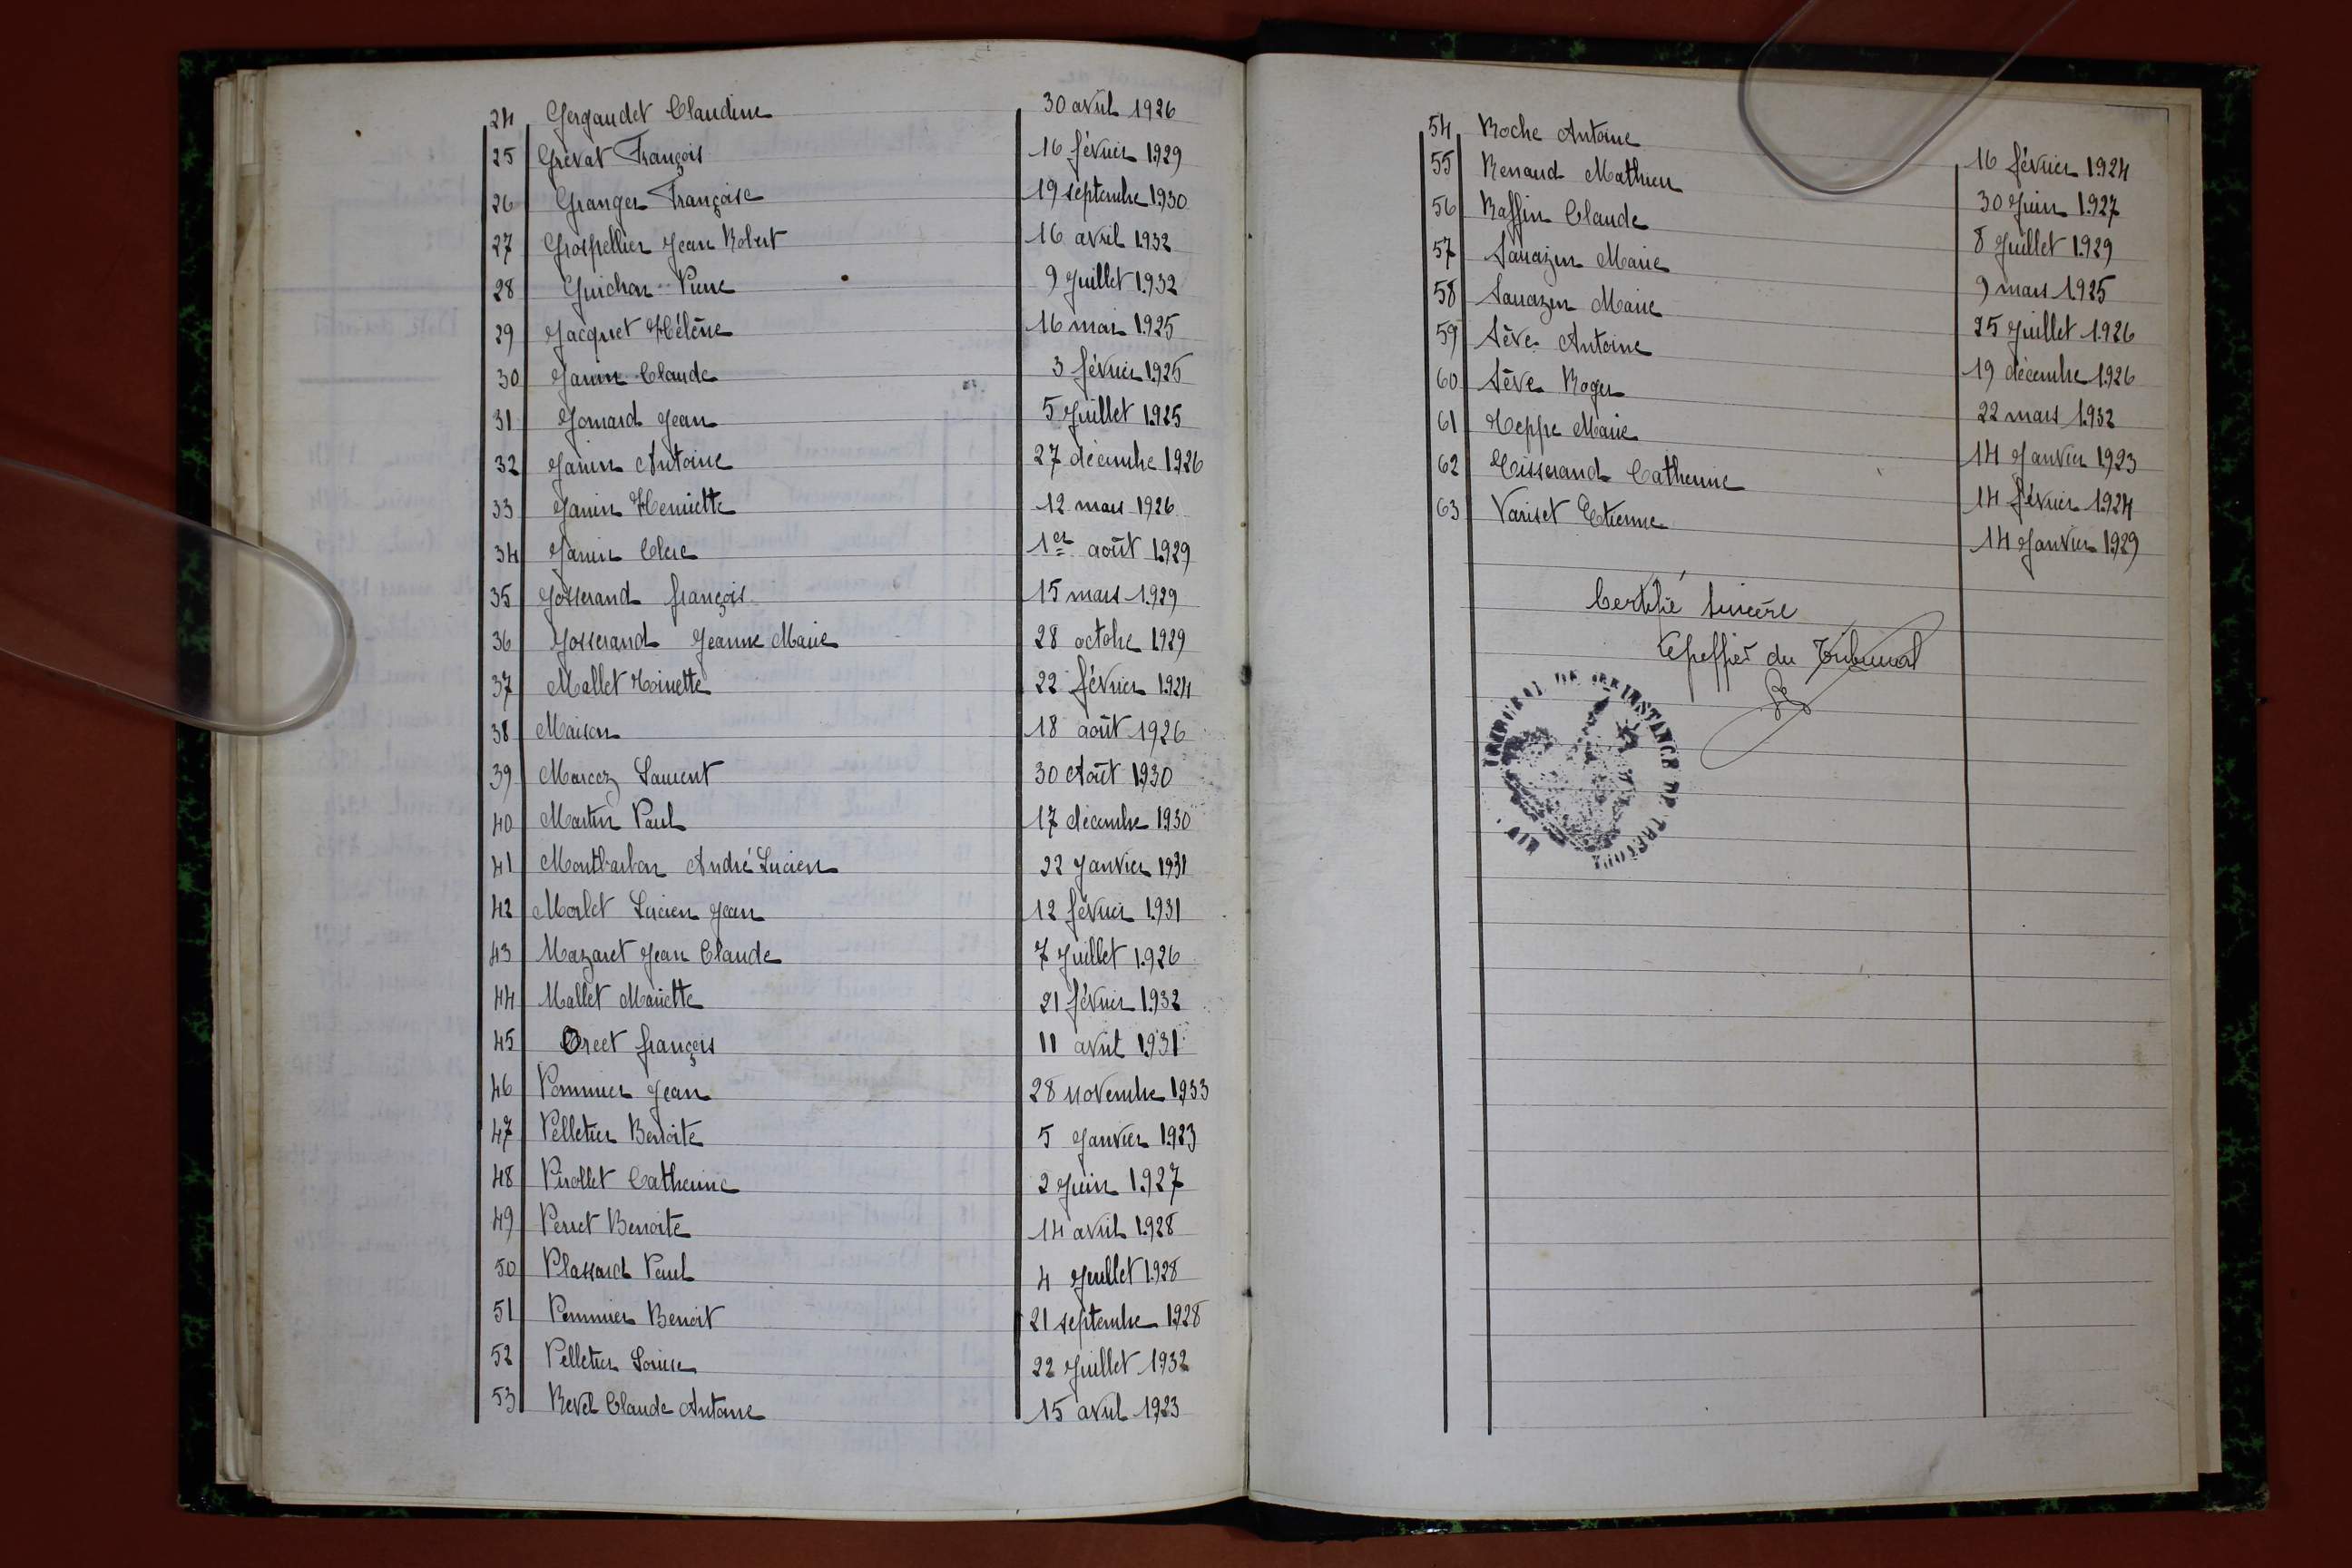 24 Gergaudet Claudine 30 avril 1926
25 Grévat François 16 février 1929
26 Granger Françoise 19 septembre 1930
27 Grospellier Jean Robert 16 avril 1932
28 Guichon Pierre 9 Juillet 1932
29 Jacquet Hélène 16 mai 1925
30 Janin Claude 3 février 1925
31 Jomard Jean 5 Juillet 1925
32 Janin Antoine 27 décembre 1926
33 Janin Henriette 12 mars 1926
34 Janin Clere 1er août 1929
35 Josserand françois 15 mars 1929
36 Josserand Jeanne Marie 28 octobre 1929
37 Mallet Toinette 22 février 1924
38 Maison 18 août 1926
39 Marcoz Laurent 30 Août 1930
40 Martin Paul 17 décembre 1930
41 Montbarbon André Lucien 22 Janvier 1931
42 Morlet Lucien Jean 12 février 1931
43 Mazaret Jean Claude 7 Juillet 1926
44 Mallet Mariette 21 février 1932
45 Orcet françois 11 avril 1931
46 Pommier Jean 28 novembre 1933
47 Pelletier Benoite 5 Janvier 1923
48 Pirollet Catherine 2 Juin 1927
49 Perret Benoite 14 avril 1928
50 Plassard Paul 4 Juillet 1928
51 Pommier Benoit 21 septembre 1928
52 Pelletier Louise 22 Juillet 1932
53 Revel Claude Antoine 15 avril 1923
54 Roche Antoine 16 février 1924
55 Renaud Mathieu 30 Juin 1927
56 Raffin Claude 8 Juillet 1929
57 Sarrazin Marie 9 mars 1925
58 Sarrazin Marie 25 Juillet 1926
59 Sève Antoine 19 décembre 1926
60 Sève Roger 22 mars 1932
61 Teppe Marie 14 Janvier 1923
62 Tisserand Catherine 14 février 1924
63 Variset Etienne 14 Janvier 1929
Certifié sincère
Le greffier du Tribunal
TRIBUNAL DE 1ERE INSTANCE DE TREVOUX
AIN